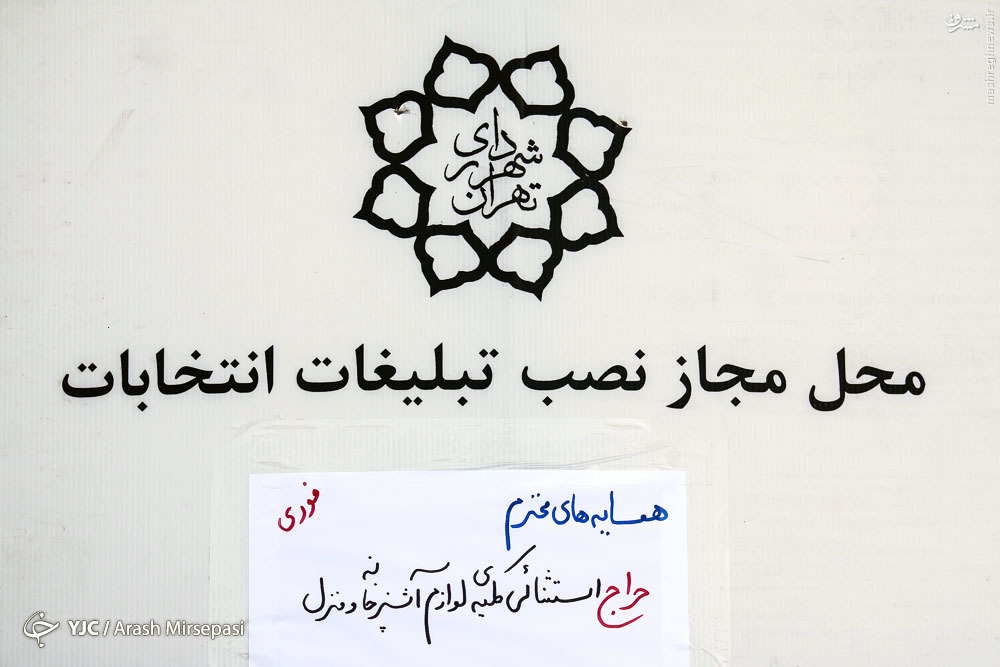 مشرق
mashreghnews.ir
شهرداری
تهران
محل مجاز نصب تبلیغات انتخابات
همسایه های محترم
فوری
حراج استثنائی کلیه ی لوازم آشپزخانه و منزل
YJC / Arash Mirsepasi